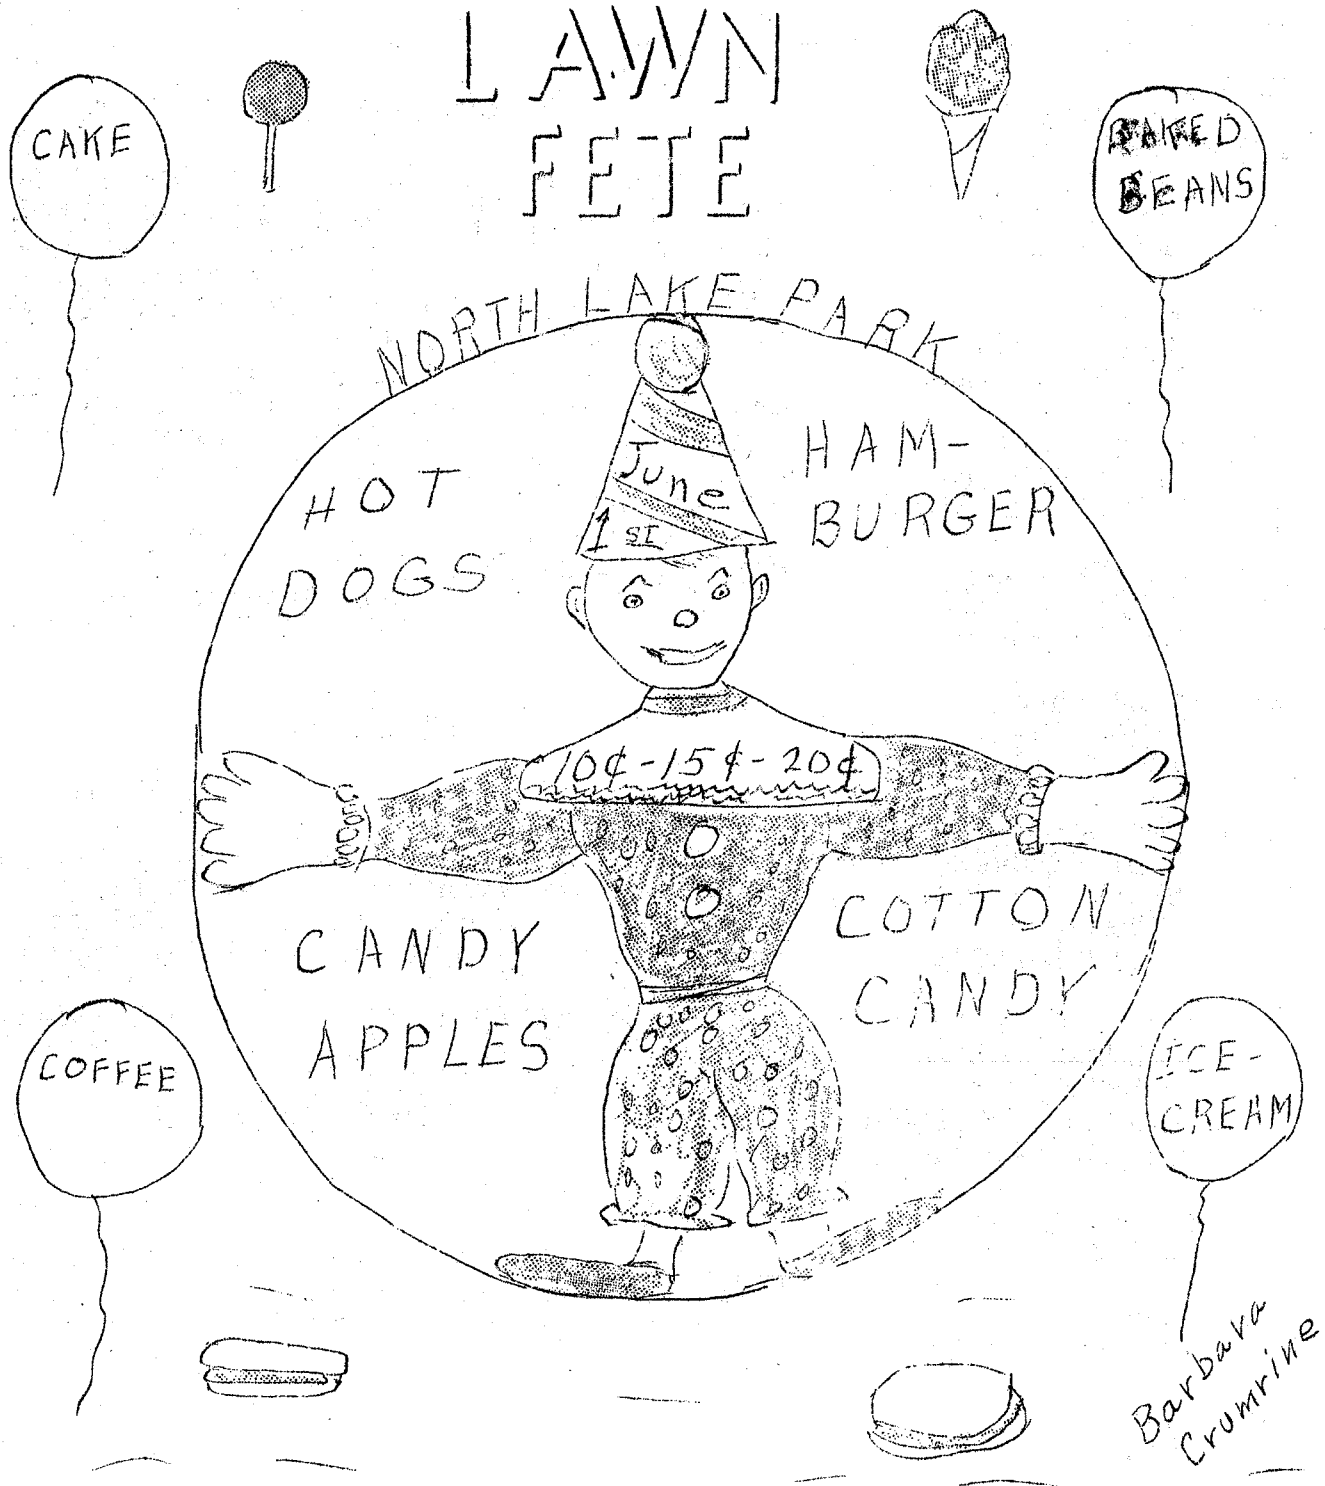 LAWN
FETE
CAKE
BAKED
BEANS
NORTH LAKE PARK
HOT
DOGS
June
1 st
HAM-
BURGER
10¢-15¢-20¢
CANDY
APPLES
COTTON
CANDY
COFFEE
ICE-
CREAM
Barbara
Crumrine